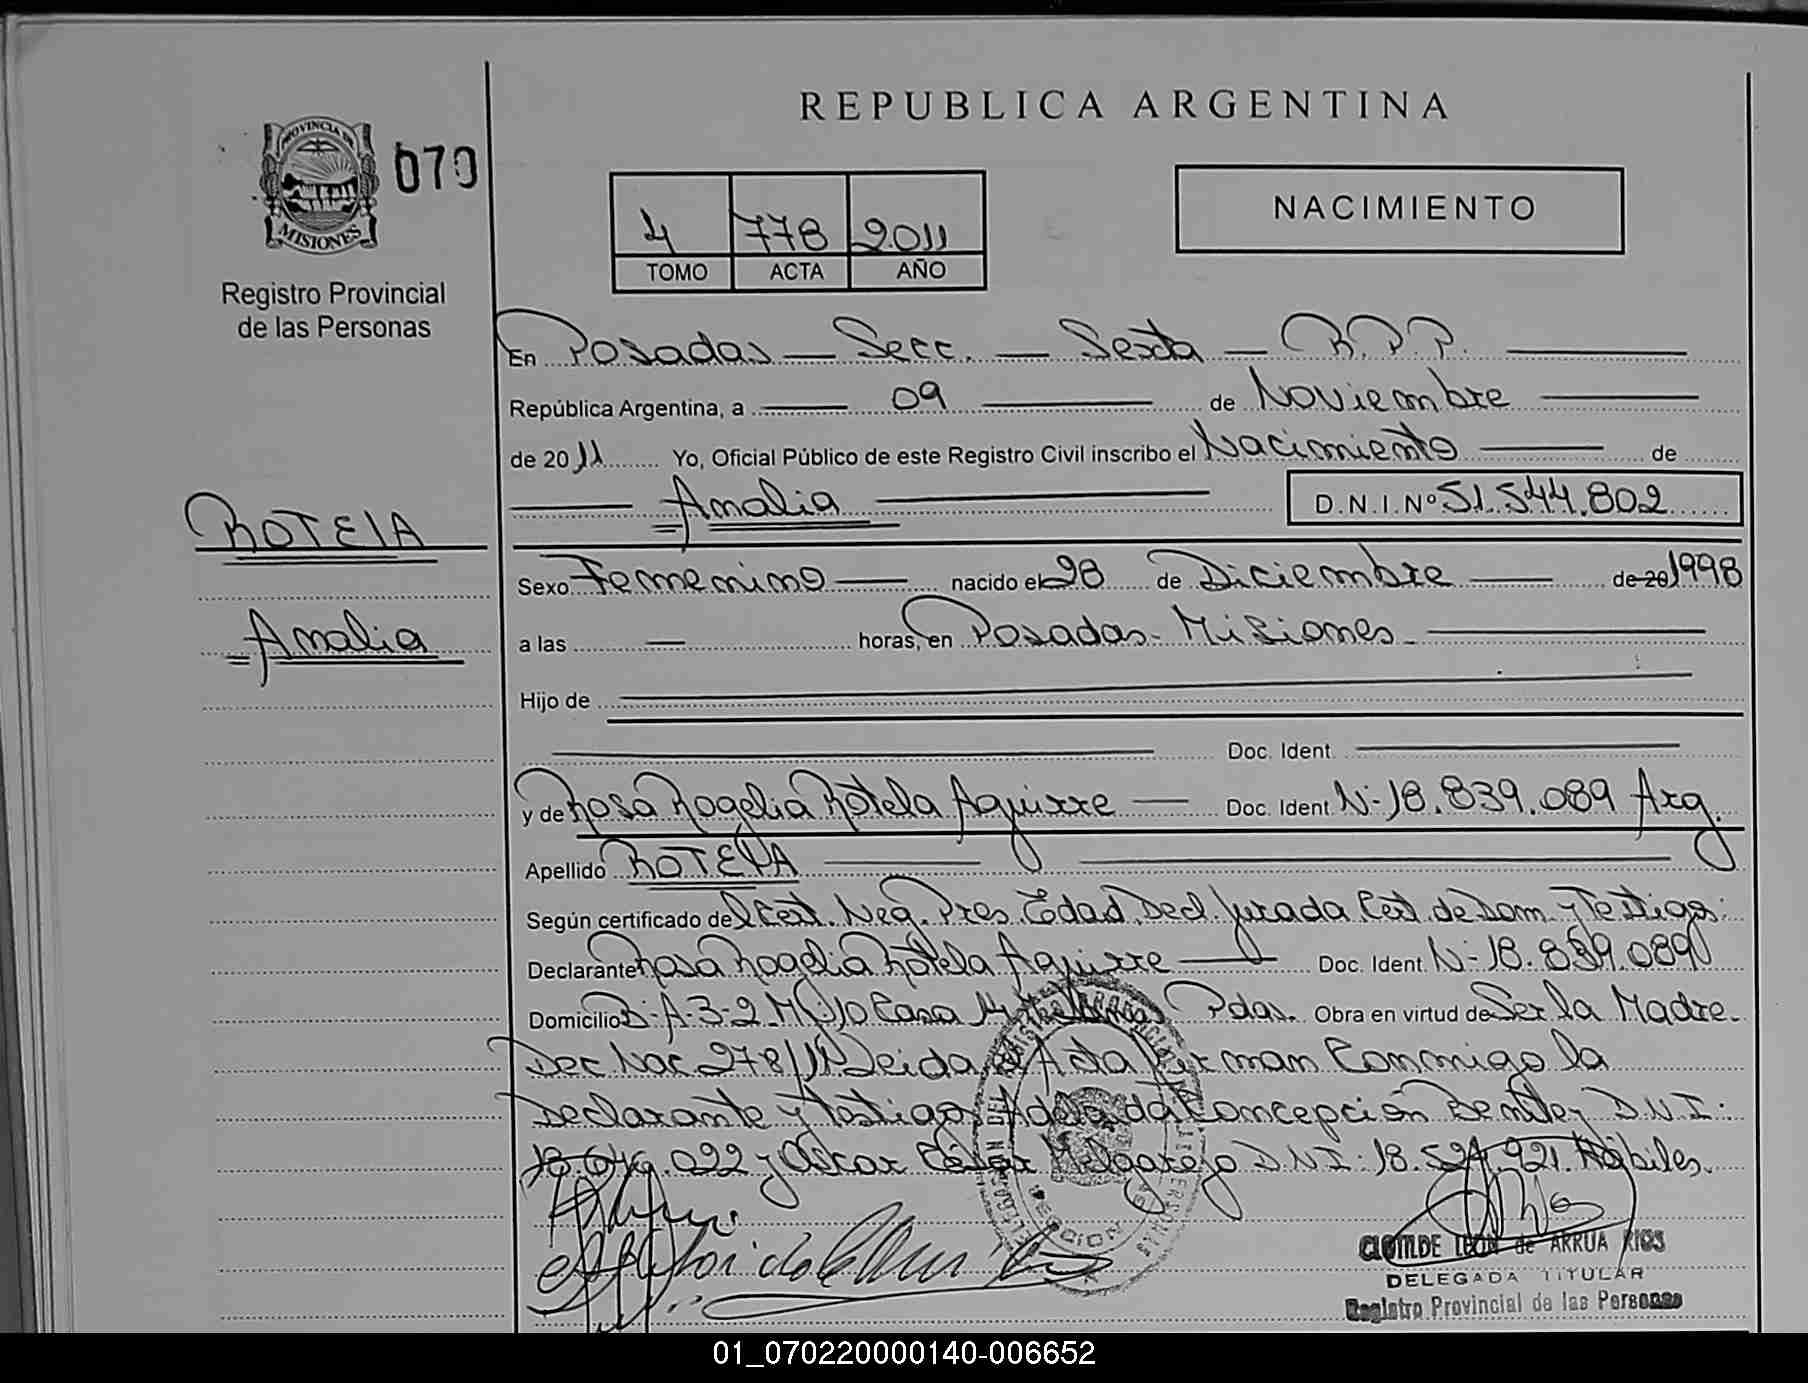 REPUBLICA ARGENTINA
PROVINCIA DE
MISIONES
070
Registro Provincial
de las Personas
4 778 2011
TOMO ACTA AÑO
NACIMIENTO
En Posadas — Secc. — Sexta — R.P.P.
República Argentina, a 09 de Noviembre
de 2011 Yo, Oficial Público de este Registro Civil inscribo el Nacimiento de
Amalia D.N.I.Nº 51.544.802
ROTELA
Amalia
Sexo Femenino nacido el 28 de Diciembre de 20 1998
a las — horas, en Posadas - Misiones
Hijo de
Doc. Ident.
y de Rosa Rogelia Rotela Aguirre — Doc. Ident. N- 18.839.089 Arg.
Apellido ROTELA
Según certificado del Cert. Neg. Pres. Edad. Decl. Jurada Cert. de Dom. y Testigos:
Declarante Rosa Rogelia Rotela Aguirre — Doc. Ident. N- 18.839.089
Domicilio B- A-3-2 Casa Pdas. Obra en virtud de Ser la Madre.
Dec Nac 278/11 Leida el Acta Firman Conmigo la
Declarante y testigos Concepción Benitez D.N.I:
.022 y Oscar Cesar Melgarejo D.N.I: 18.524.921. Hábiles.
CLOTILDE LEON de ARRUA RIOS
DELEGADA TITULAR
Registro Provincial de las Personas
01_070220000140-006652